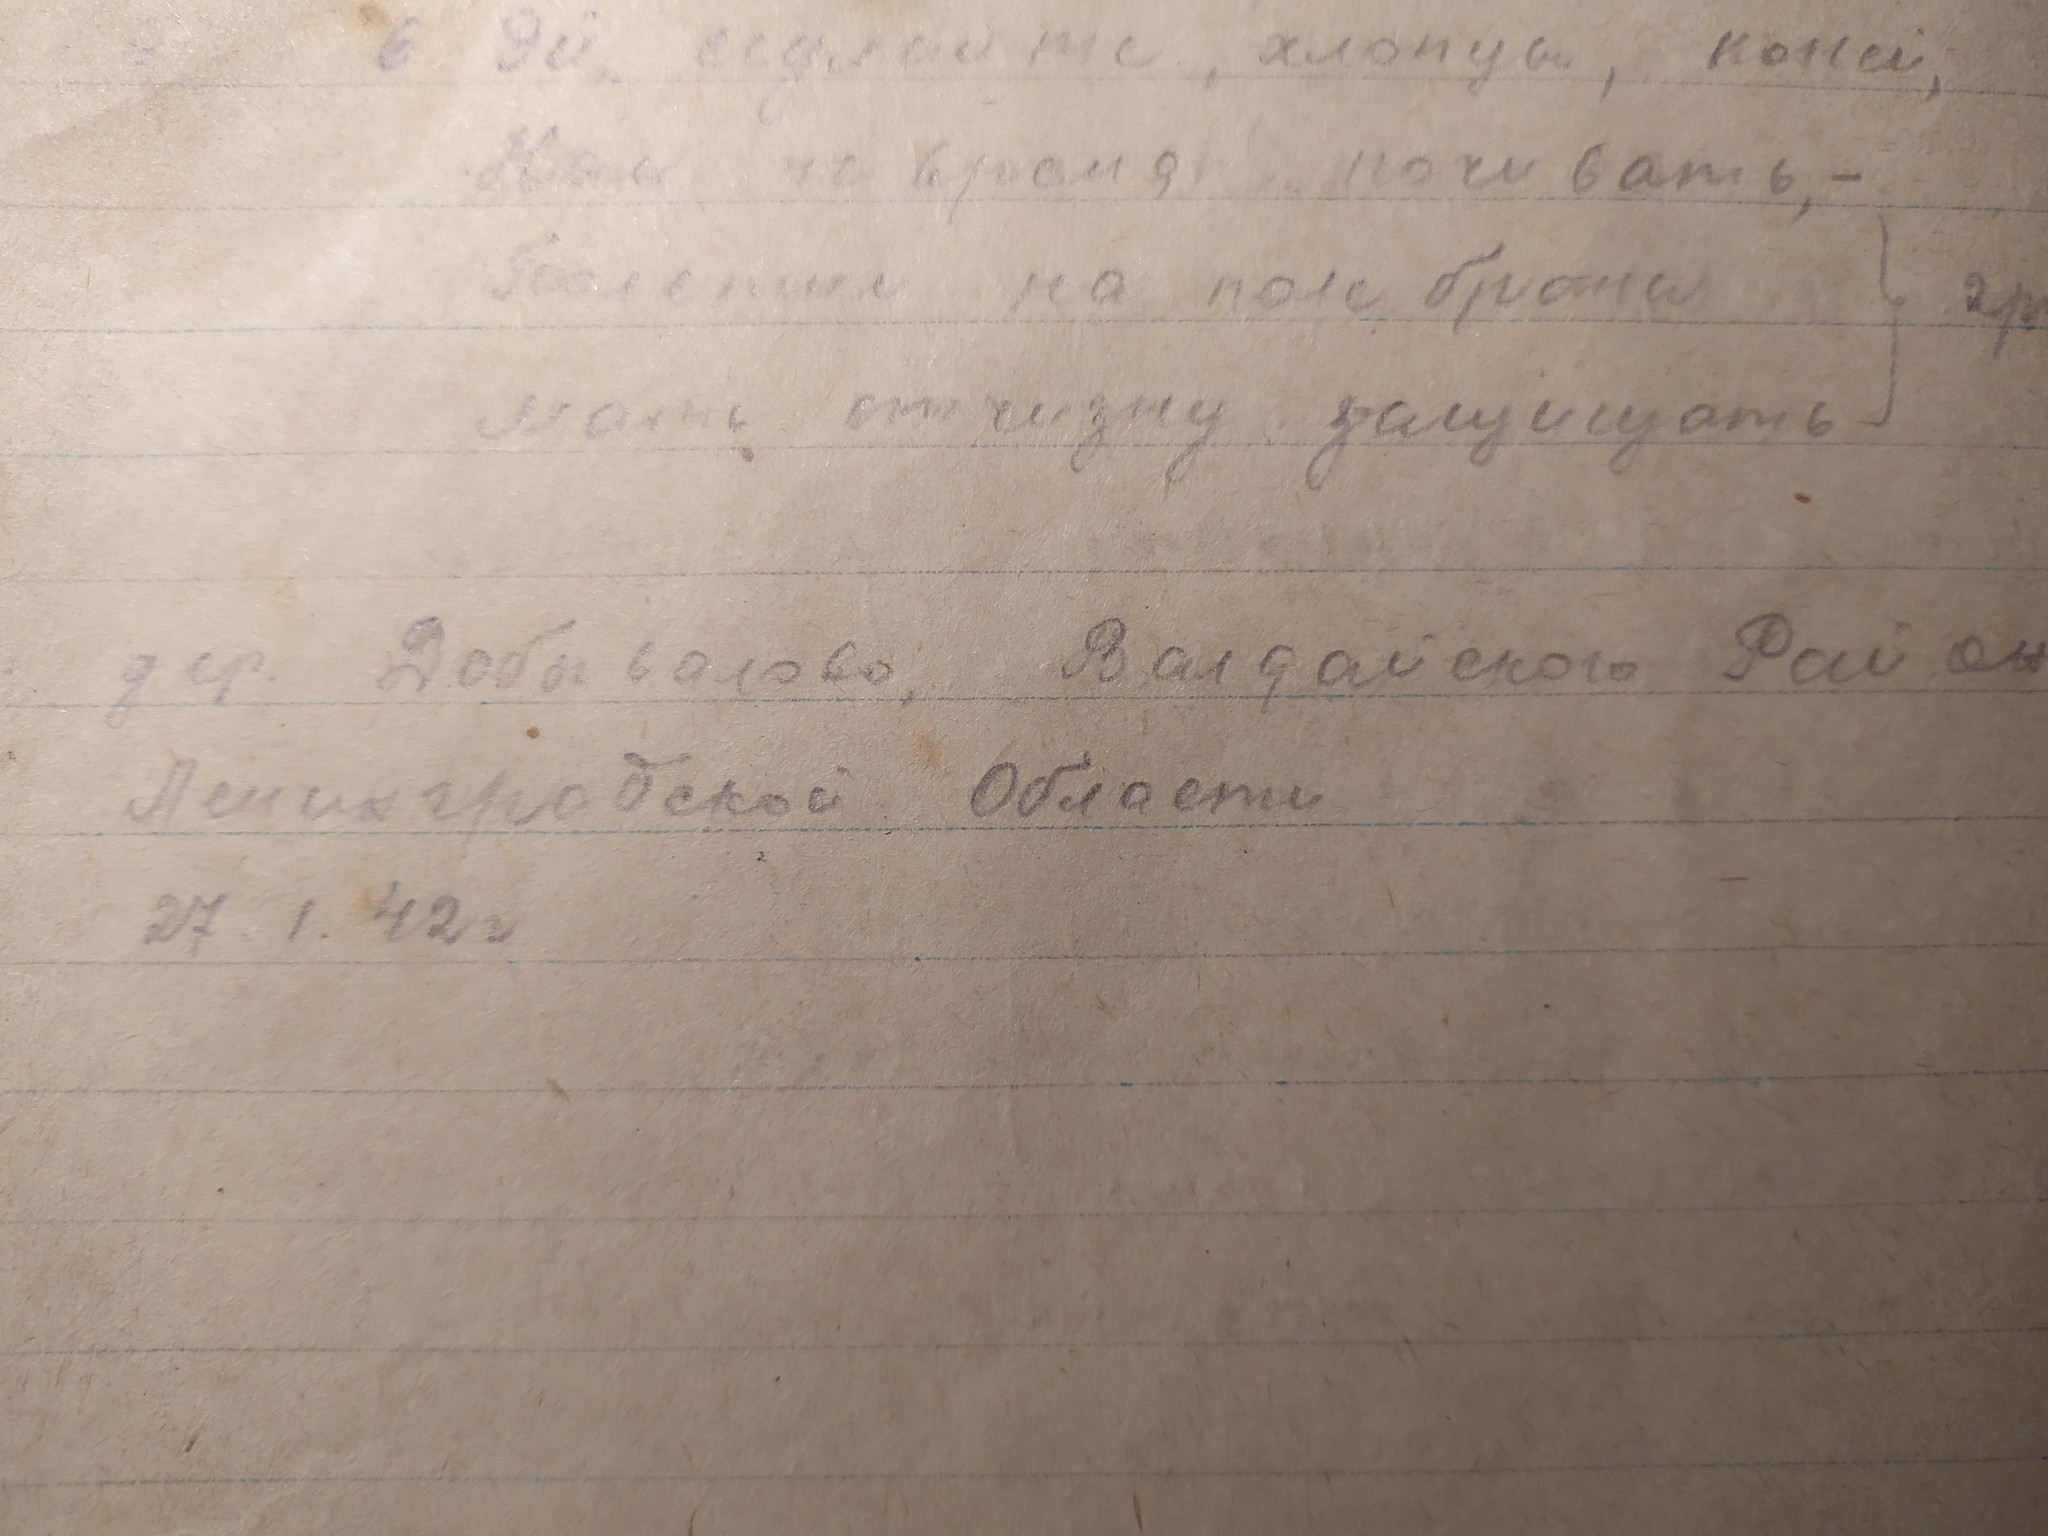 6 Эй, седлайте, хлопцы, коней,
Нам не время почивать,-
Полетим на поле брани
Мать отчизну защищать
2р
дер. Добывалово, Валдайского Район
Ленинградской Области
27. 1. 42г